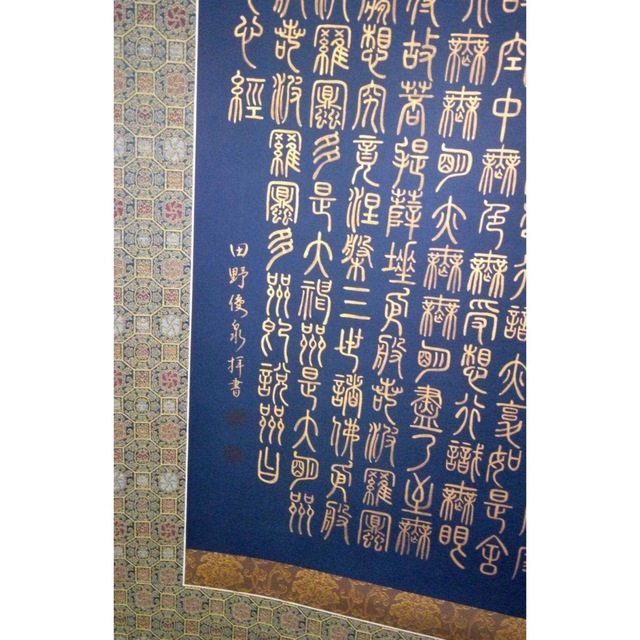 行識亦復如是舍
空中無色無受想行識無眼
無無明亦無無明盡乃至無
故菩提薩埵依般若波羅蜜
想究竟涅槃三世諸佛依般
波羅蜜多是大神咒是大明咒
般若波羅蜜多咒即說咒曰
心經
田野俊泉拝書